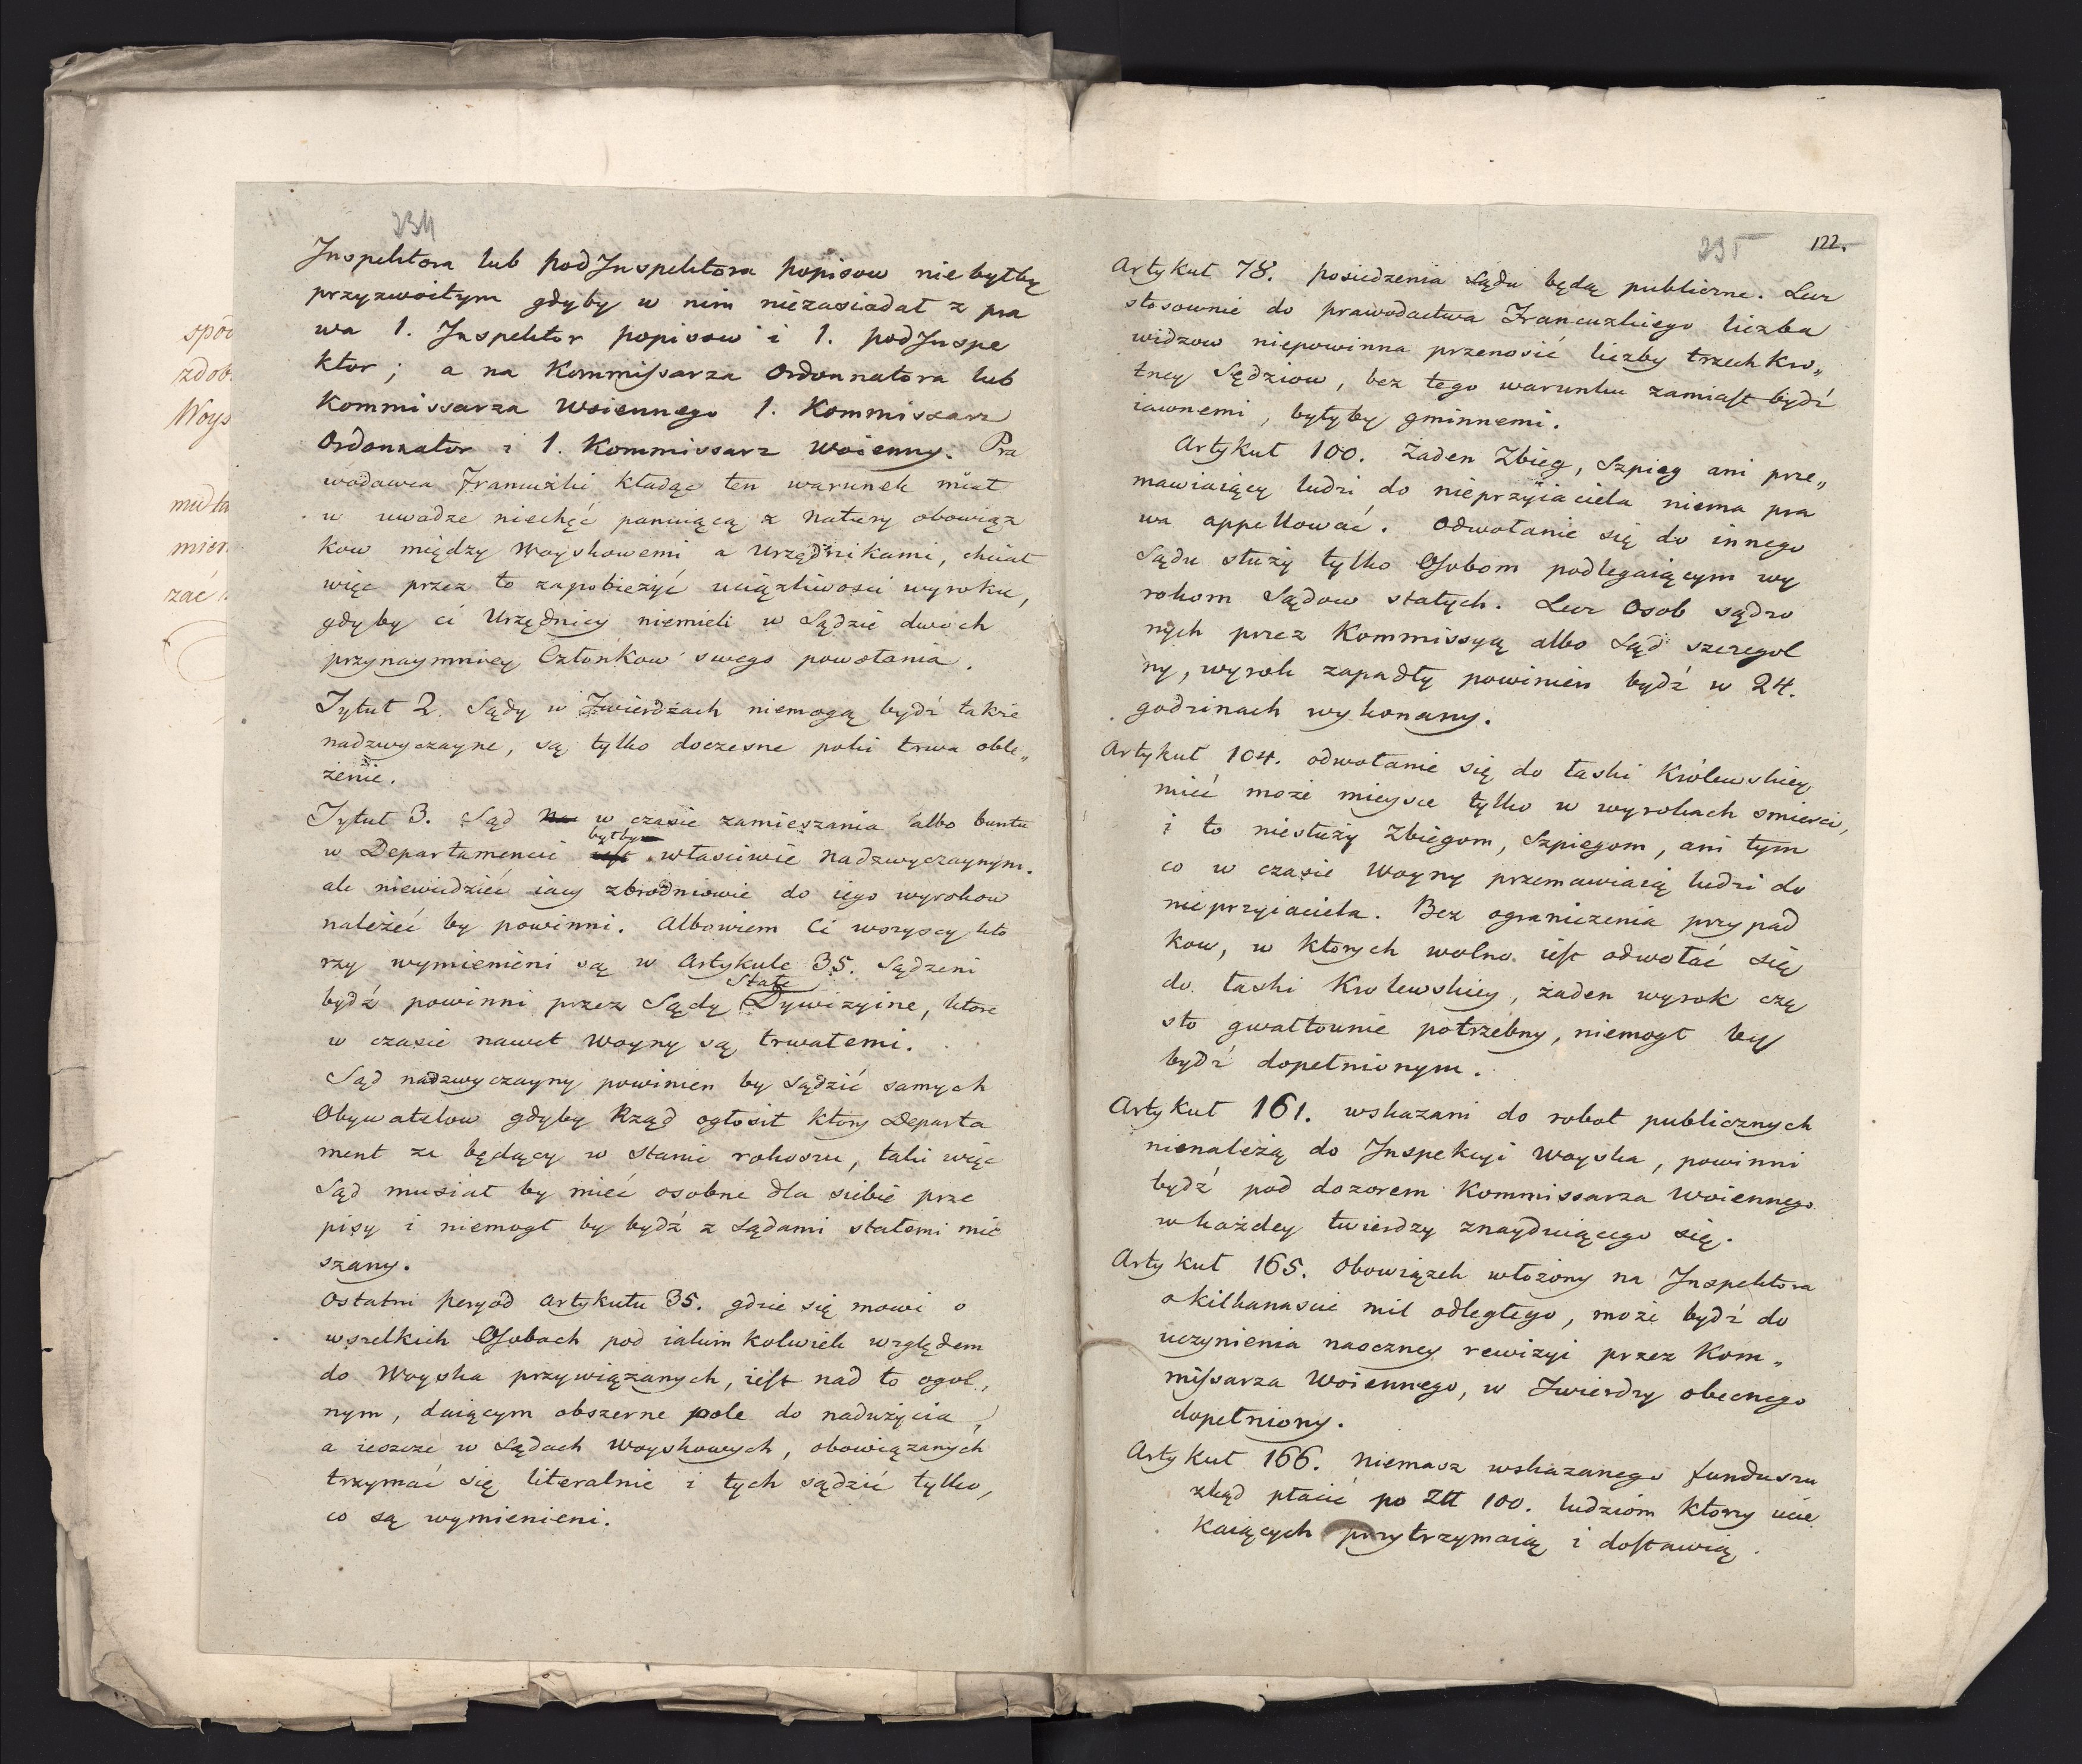 234
Inspektora lub podJnspektora popisow nie byłby
przyzwoitym gdyby w nim niezasiadał z pra
wa 1. Jnspektor popisow i 1. podJnspe
ktor; a na Kommissarza Ordonnatora lub
Kommissarza Woiennego 1. Kommissarz
Ordonnator i 1. Kommissarz Woienny. Pra
wodawca Francuzki kładąc ten warunek miał
w uwadze niechęć panuiącą z natury obowiąz
kow między Woyskowemi a Urzędnikami, chciał
więc przez to zapobieżyć uciążliwosci wyroku,
gdyby ci Urzędnicy niemieli w Sądzie dwoch
przynaymniey Członkow swego powołania.
Tytuł 2. Sądy w Twierdzach niemogą bydź także
nadzwyczayne, są tylko doczesne poki trwa oblę„
żenie.
Tytuł 3. Sąd na w czasie zamieszania albo buntu
byłby
w Departamencie iest właściwie nadzwyczaynym.
ale niewidzieć iacy zbrodniowie do iego wyrokow
należeć by powinni. Albowiem Ci wszyscy kto
rzy wymienieni są w Artykule 35. Sądzeni
Stałe
bydź powinni przez Sądy Dywizyine, ktore
w czasie nawet Woyny są trwałemi.
Sąd nadzwyczayny powinien by sądzić samych
Obywatelow gdyby Rząd ogłosił ktory Departa
ment za będący w stanie rokoszu, taki więc
Sąd musiał by mieć osobne dla siebie prze
pisy i niemogł by bydź z Sądami stałemi mie
szany.
Ostatni peryod Artykułu 35. gdzie się mowi o
wszelkich Osobach pod iakim kolwiek względem
do Woyska przywiązanych, iest nad to ogol„
nym, daiącym obszerne pole do nadużycia,
a ieszcze w Sądach Woyskowych, obowiązanych
trzymać się literalnie i tych sądzić tylko,
co są wymienieni.
235
122.
Artykuł 78. posiedzenia Sądu będą publiczne. Lecz
stosownie do prawodactwa Francuzkiego liczba
widzow niepowinna przenosić liczby trzech kro„
tney Sędziow, bez tego warunku zamiast bydź
iawnemi, byłyby gminnemi.
Artykuł 100. Żaden Zbieg, Szpieg ani prze„
mawiaiący ludzi do nieprzyiaciela niema pra
wa appellować. Odwołanie się do innego
Sądu służy tylko Osobom podlegaiącym wy
rokom Sądow stałych. Lecz Osob sądzo
nych przez Kommissyą albo Sąd szczegol
ny, wyrok zapadły powinien bydź w 24.
godzinach wykonany.
Artykuł 104. odwołanie się do łaski Krölewskiey
mieć może mieysce tylko w wyrokach smierci,
i to niesłuży Zbiegom, Szpiegom, ani tym
co w czasie Woyny przemawiaią ludzi do
nieprzyiaciela. Bez ograniczenia przypad
kow, w ktorych wolno iest odwołać się
do łaski Krolewskiey, żaden wyrok czę
sto gwałtownie potrzebny, niemogł by
bydź dopełnionym.
Artykuł 161. wskazani do robot publicznych
nienależą do Jnspekcyi Woyska, powinni
bydź pod dozorem Kommissarza Woiennego
w każdey twierdzy znayduiącego się.
Artykuł 165. Obowiązek włożony na Jnspektora
o kilkanascie mil odległego, może bydź do
uczynienia naoczney rewizyi przez Kom„
missarza Woiennego, w Twierdzy obecnego
dopełniony.
Artykuł 166. niemasz wskazanego funduszu
zkąd płacić po Złł 100. ludziom ktorzy ucie
kaiących przytrzymaią i dostawią.